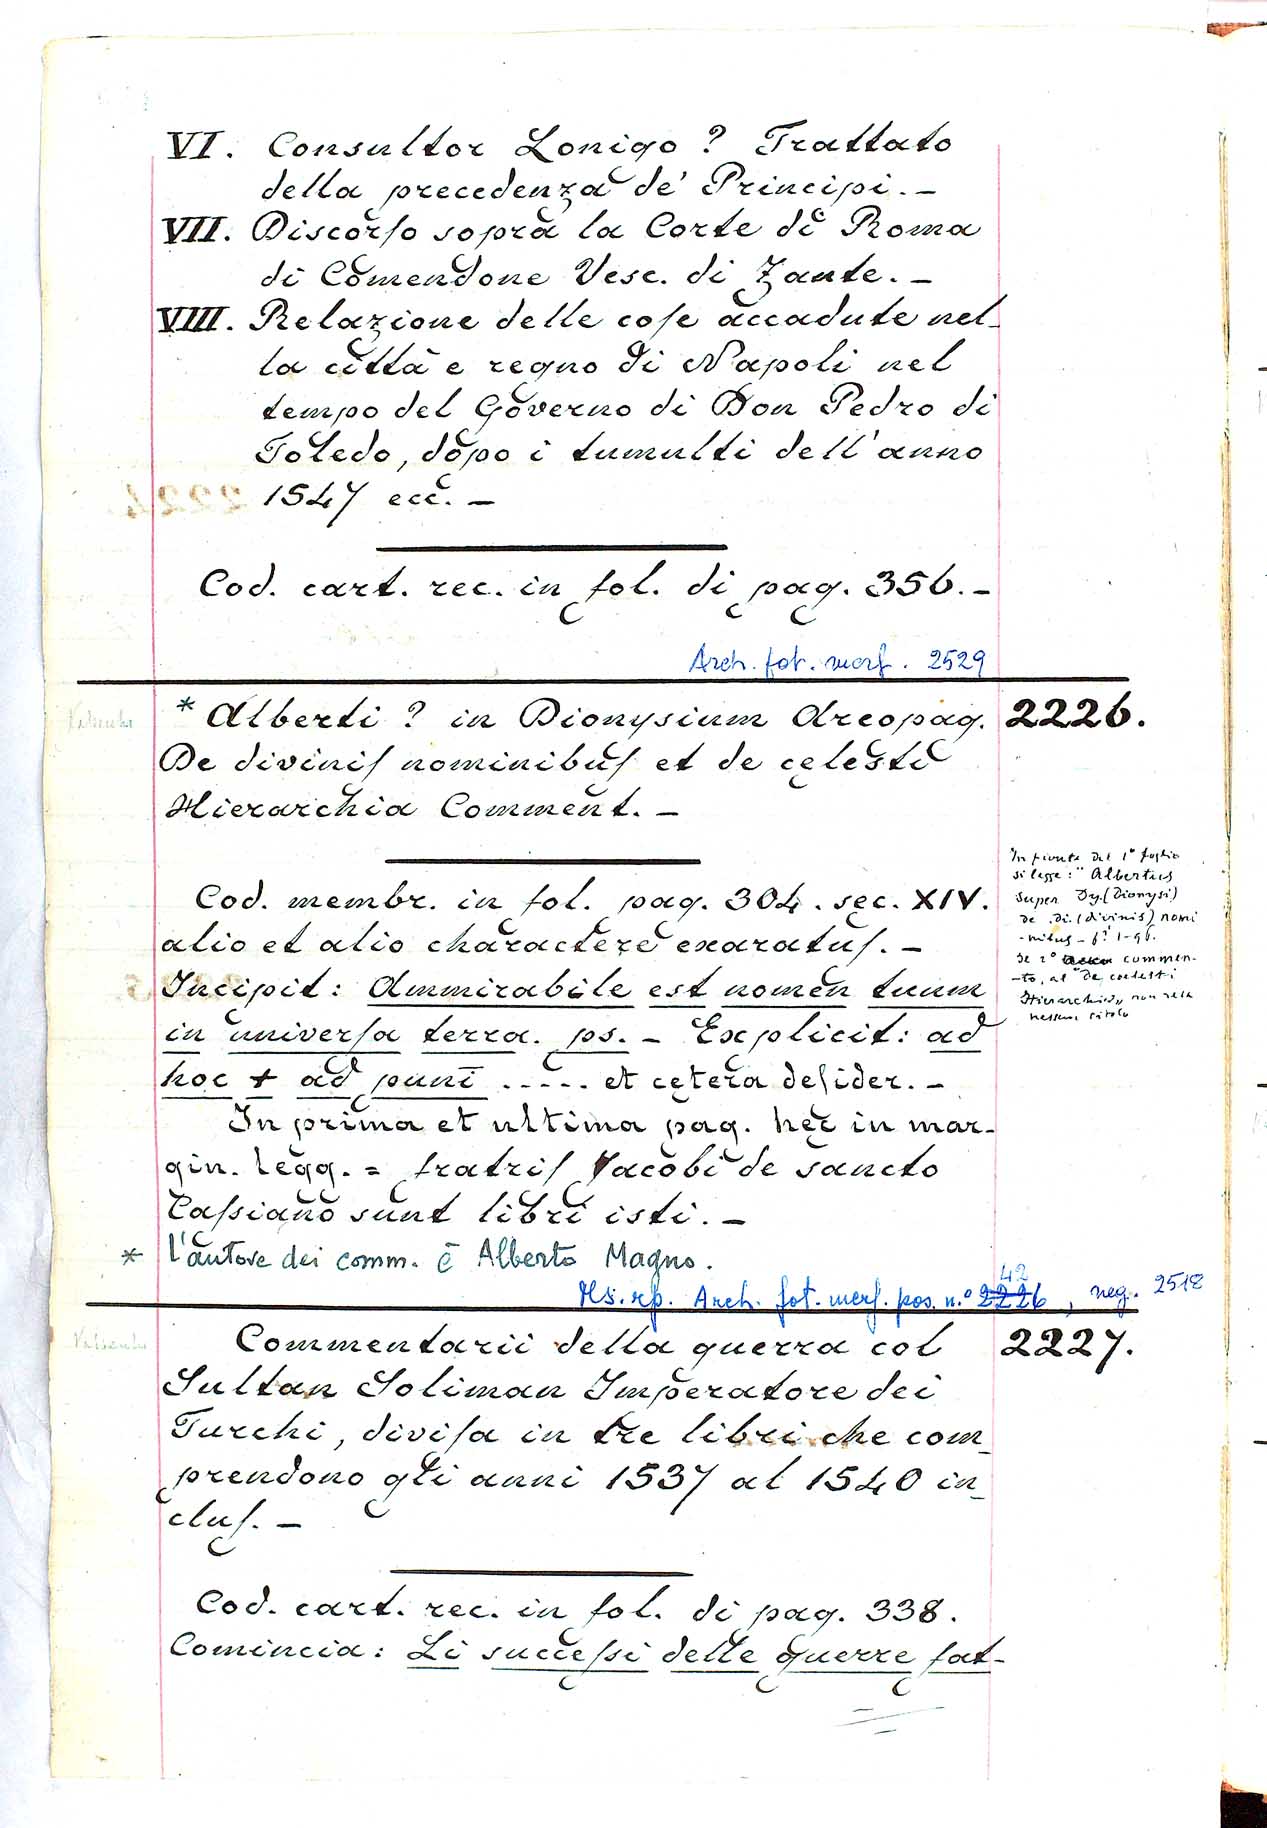 VI. Consultor Lonigo ? Trattato
della precedenza de' Principi. –
VII. Discorſo sopra la Corte di Roma
di Comendone Vesc. di Zante. –
VIII. Relazione delle coſe accadute nel-
la città e regno di Napoli nel
tempo del Governo di Don Pedro di
Toledo, dopo i tumulti dell'anno
1547 ecc. –
Cod. cart. rec. in fol. di pag. 356. –
Arch. fot. 2529
* Alberti ? in Dionysium Areopag. 2226.
De diviniſ nominibuſ et de celesti
Hierarchia Comment. –
Cod. membr. in fol. pag. 304. sec. XIV.
alio et alio charactere exaratuſ. –
Incipit: Ammirabile est nomen tuum
in univerſa terra. ps. – Explicit: ad
hoc + ad punī ..... et cetera deſider. –
In prima et ultima pag. hec in mar-
gin. legg. = fratriſ Jacobi de sancto
Caſsiano sunt libri isti. –
In fronte del 1° foglio
si legge: "Albertus
super Dy.(Dionysi)
de .Di.(divinis) nomi
-nibus – f.i 1-96.
Se 2° commen-
-to, al "De coelesti
Hierarchia" non
nessun titolo
* l'autore dei comm. è Alberto Magno.
Arch. fot. pos. n.° 2226 42, neg. 2518
Commentarii della guerra col 2227.
Sultan Soliman Imperatore dei
Turchi, diviſa in tre libri che com-
prendono gli anni 1537 al 1540 in-
cluſ. –
Cod. cart. rec. in fol. di pag. 338.
Comincia: Li succeſsi delle guerre fat-